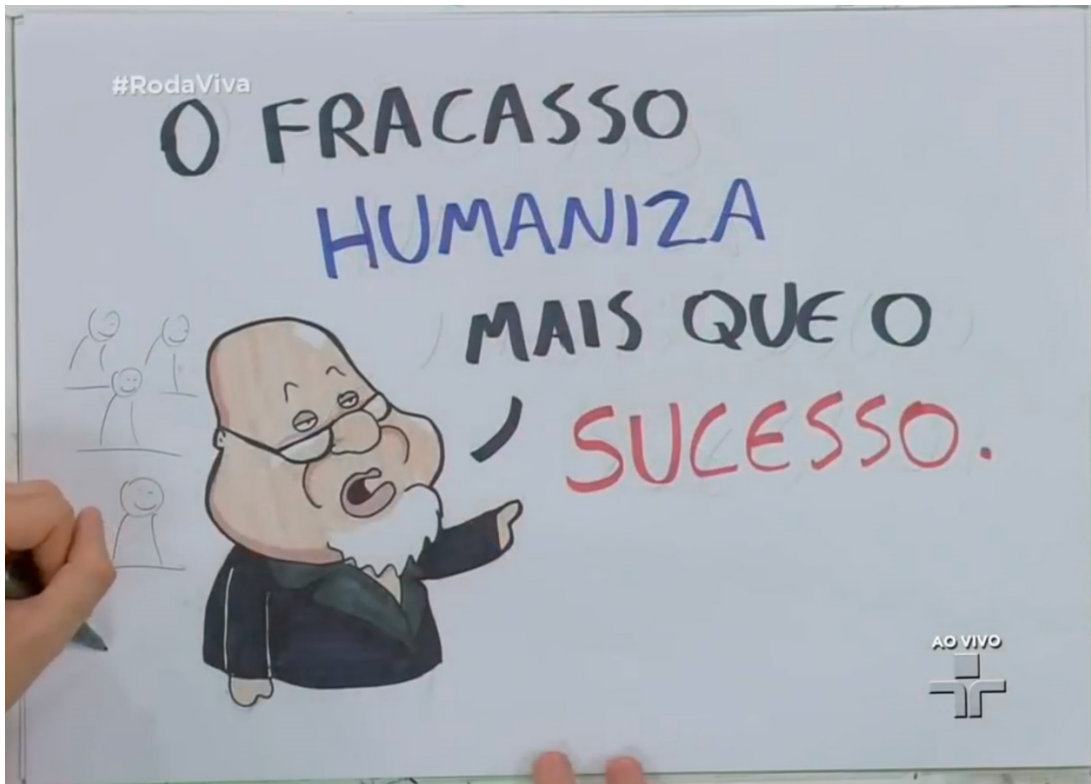 #RodaViva
O FRACASSO
HUMANIZA
MAIS QUE O
SUCESSO.
AO VIVO